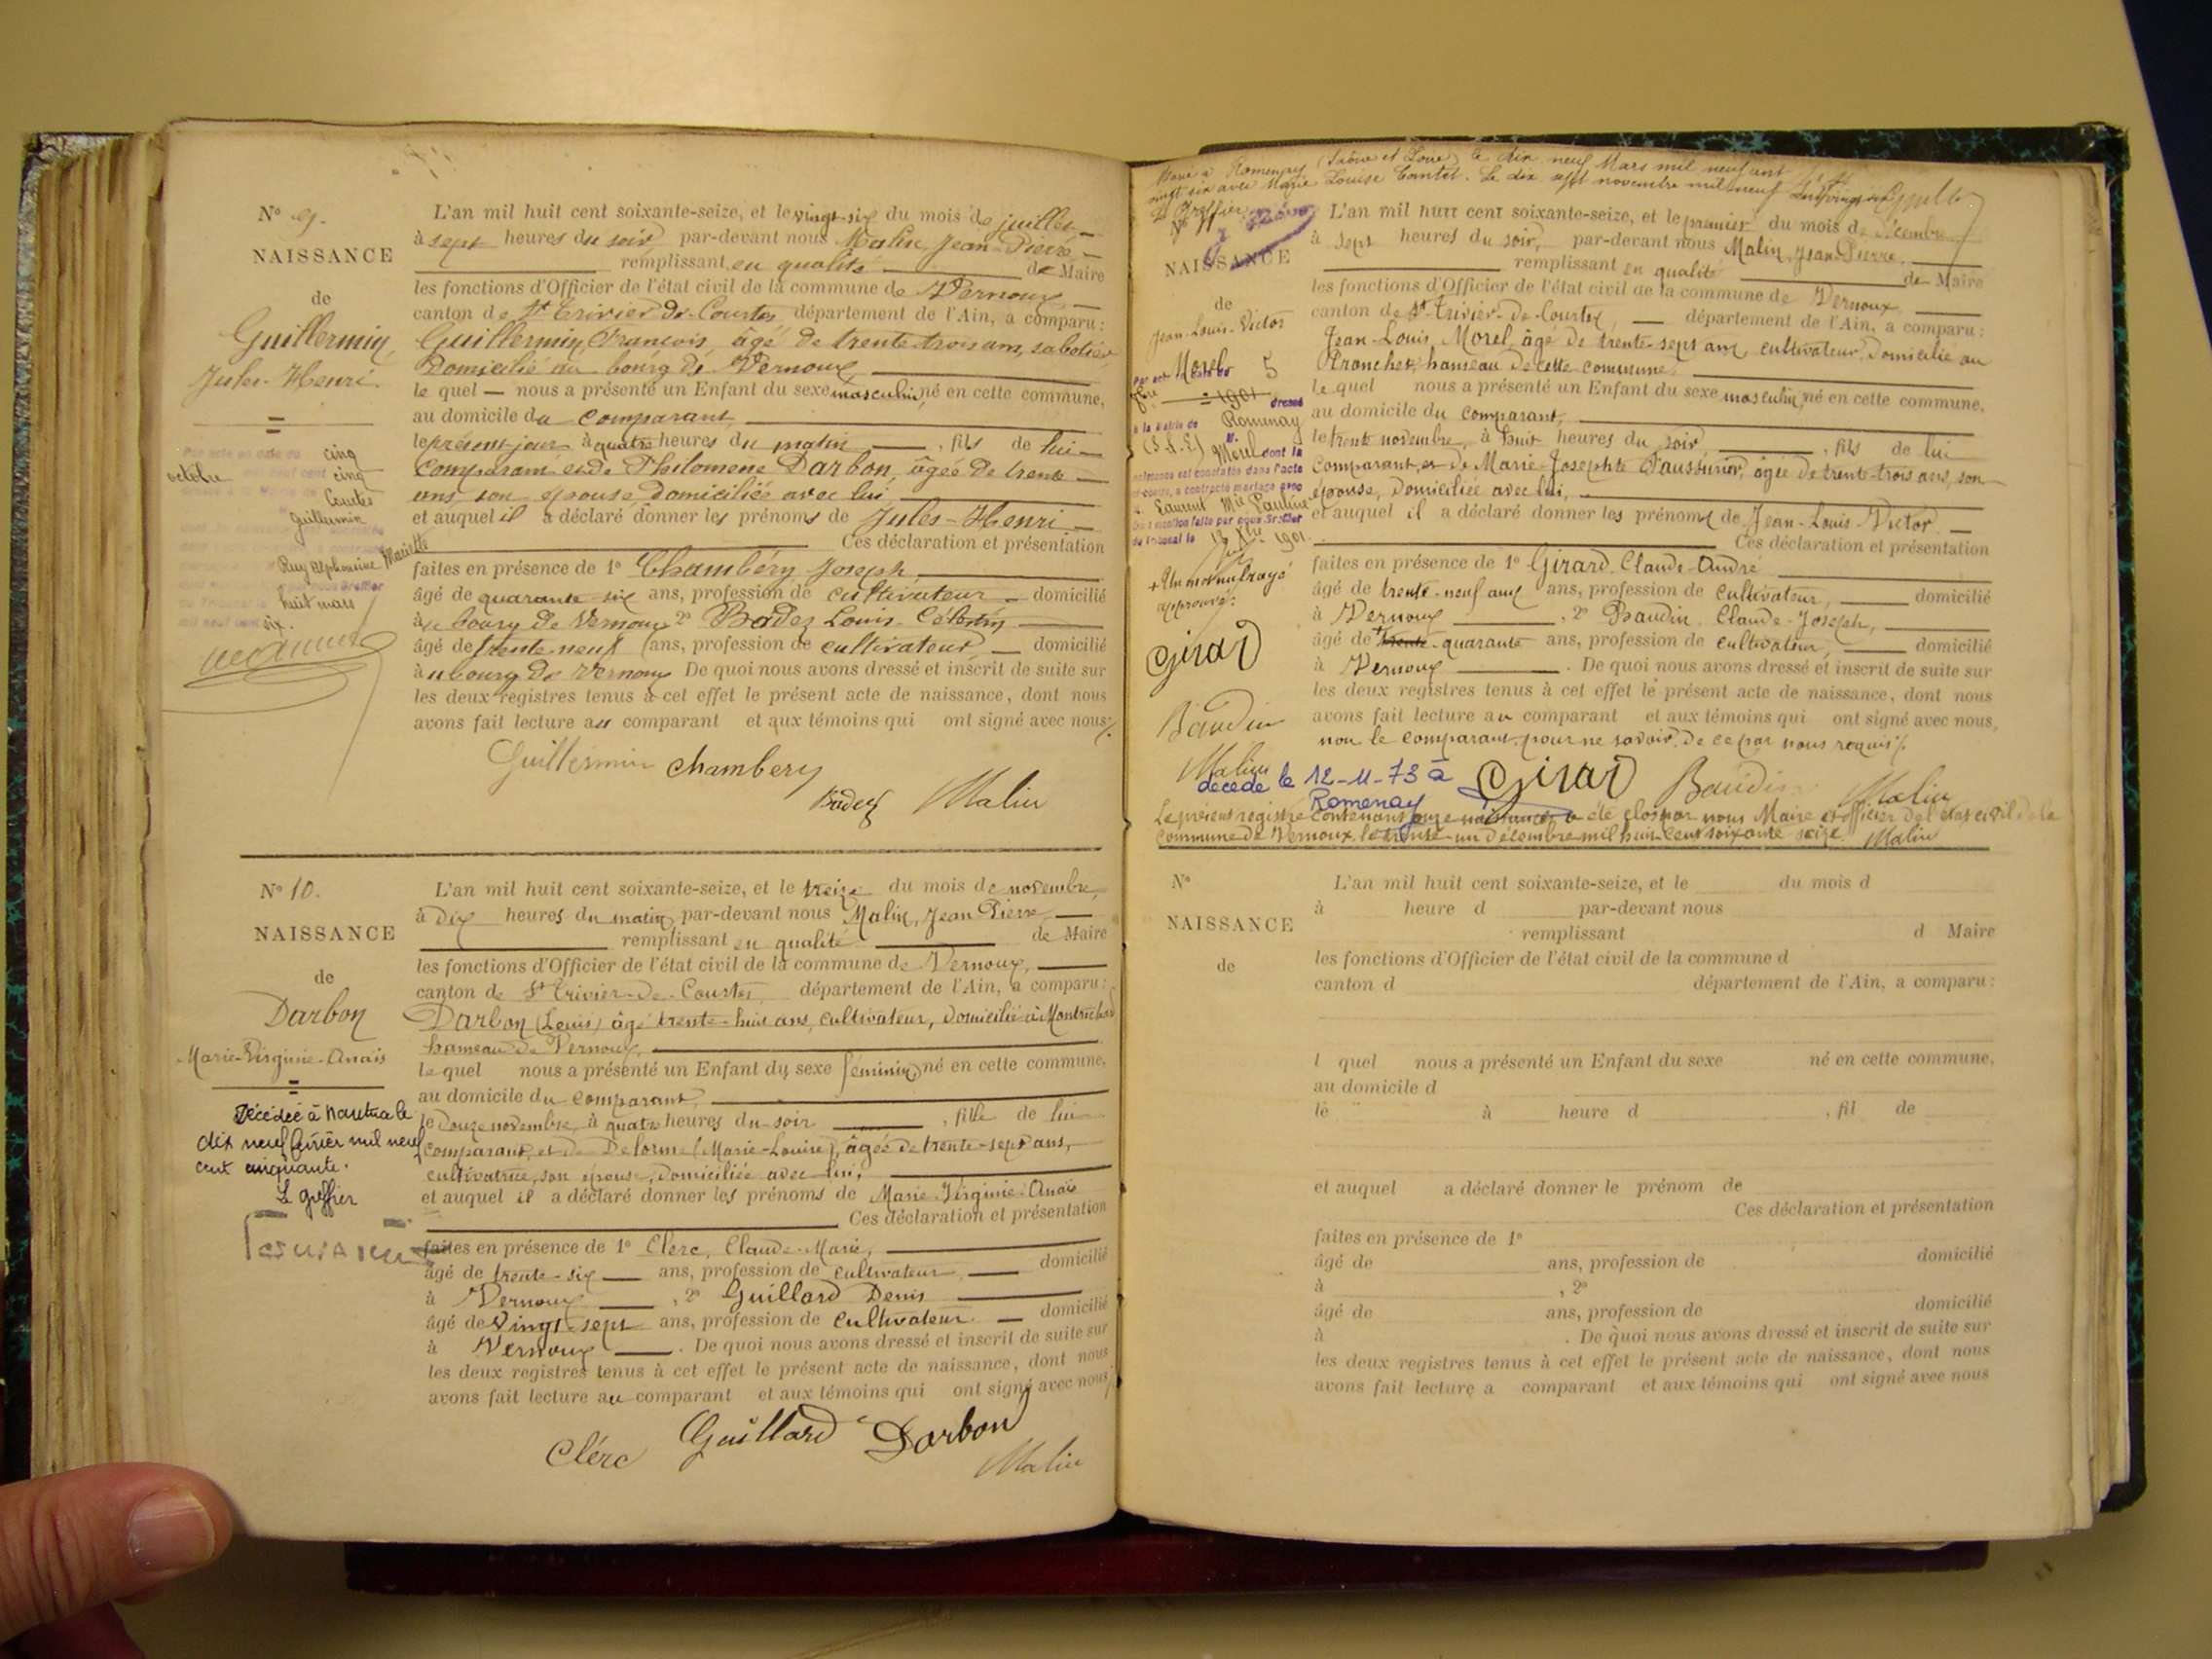 N° 9.
NAISSANCE
de
Guillermin,
Jules-Henri.
cinq
octobre
cinq
Courtes
Guillermin
Ruy Alphonsine Mariette
huit mars
six.
L'an mil huit cent soixante-seize, et le vingt-six du mois de juillet
à sept heures du soir par-devant nous Malin Jean-Pierre
remplissant en qualité de Maire
les fonctions d'Officier de l'état civil de la commune de Vernoux
canton de St Trivier-de-Courtes département de l'Ain, a comparu :
Guillermin, François, âgé de trente-trois ans, sabotier
Domicilié au bourg de Vernoux,
le quel nous a présenté un Enfant du sexe masculin, né en cette commune,
au domicile du comparant,
le présent jour à quatre heures du matin, fils de lui
comparant et de Philomene Darbon, âgée de trente
ans son épouse domiciliée avec lui,
et auquel il a déclaré donner les prénoms de Jules-Henri
Ces déclaration et présentation
faites en présence de 1° Chambéry Joseph,
âgé de quarante-six ans, profession de cultivateur domicilié
au bourg de Vernoux 2° Badez Louis Célestin
âgé de trente-neuf ans, profession de cultivateur domicilié
au bourg de Vernoux De quoi nous avons dressé et inscrit de suite sur
les deux registres tenus à cet effet le présent acte de naissance, dont nous
avons fait lecture au comparant et aux témoins qui ont signé avec nous
Guillermin Chambery
Badez Malin
N° 10.
NAISSANCE
de
Darbon
Marie-Virginie-Anaïs
Décédée à Nantua le
dix neuf février mil neuf
cent cinquante.
Le greffier
L'an mil huit cent soixante-seize, et le treize du mois de novembre,
à dix heures du matin par-devant nous Malin, Jean Pierre,
remplissant en qualité de Maire
les fonctions d'Officier de l'état civil de la commune de Vernoux,
canton de St Trivier-de-Courtes, département de l'Ain, a comparu :
Darbon (Louis) âgé trente-huit ans, cultivateur, domicilié à
hameau de Vernoux,
le quel nous a présenté un Enfant du sexe féminin, né en cette commune,
au domicile du comparant,
le douze novembre, à quatre heures du soir, fille de lui
comparant, et de Delorme (Marie-Louise), âgée de trente-sept ans,
cultivatrice, son épouse, domiciliée avec lui,
et auquel il a déclaré donner les prénoms de Marie-Virginie-Anaïs
Ces déclaration et présentation
faites en présence de 1° Clerc, Claude-Marie,
âgé de trente-six ans, profession de cultivateur domicilié
à Vernoux, 2° Guillard Denis
âgé de vingt-sept ans, profession de cultivateur domicilié
à Vernoux. De quoi nous avons dressé et inscrit de suite sur
les deux registres tenus à cet effet le présent acte de naissance, dont nous
avons fait lecture au comparant et aux témoins qui ont signé avec nous
Clérc Guillard Darbon
Malin
Marié à Romenay (Saône et Loire) le dix neuf Mars mil neuf cent
vingt six avec Marie Louise Cantet. Le dix sept novembre mil neuf
Le Greffier
NAISSANCE
de
Jean-Louis-Victor
Morel
5
1901 dressé
à la Mairie de Romenay
(S.&L.) M. Morel dont la
naissance est constatée dans l'acte
ci-contre, a contracté mariage avec
Laurent Mie Pauline
mention faite par nous Greffier
du tribunal le 1901.
+ Un mot nul rayé
approuvé :
Girard
Baudin
Malin
L'an mil huit cent soixante-seize, et le premier du mois de Décembre
à sept heures du soir, par-devant nous Malin, Jean-Pierre,
remplissant en qualité de Maire
les fonctions d'Officier de l'état civil de la commune de Vernoux
canton de St-Trivier-de-Courtes, département de l'Ain, a comparu :
Jean-Louis Morel, âgé de trente-sept ans, cultivateur, domicilié au
hameau de cette commune,
le quel nous a présenté un Enfant du sexe masculin, né en cette commune,
au domicile du comparant,
le trente novembre, à huit heures du soir, fils de lui
comparant, et de Marie-Josephte âgée de trente-trois ans, son
épouse, domiciliée avec lui,
et auquel il a déclaré donner les prénoms de Jean-Louis-Victor
Ces déclaration et présentation
faites en présence de 1° Girard, Claude-André
âgé de trente-neuf ans ans, profession de cultivateur, domicilié
à Vernoux, 2° Baudin Claude-Joseph,
âgé de + trente quarante ans, profession de cultivateur, domicilié
à Vernoux. De quoi nous avons dressé et inscrit de suite sur
les deux registres tenus à cet effet le présent acte de naissance, dont nous
avons fait lecture au comparant et aux témoins qui ont signé avec nous,
non le comparant pour ne savoir, de ce par nous requis
décédé le 12-11-73 à Girard Baudin Malin
Romenay
Le présent registre contenant onze naissances a été clos par nous Maire et officier de l'état civil de la
commune de Vernoux, le trente-un Décembre mil huit cent soixante seize. Malin
N°
NAISSANCE
de
L'an mil huit cent soixante-seize, et le du mois d
à heure d par-devant nous
remplissant d Maire
les fonctions d'Officier de l'état civil de la commune d
canton d département de l'Ain, a comparu :
l quel nous a présenté un Enfant du sexe né en cette commune,
au domicile d
le à heure d , fil de
et auquel a déclaré donner le prénom de
Ces déclaration et présentation
faites en présence de 1°
âgé de ans, profession de domicilié
à , 2°
âgé de ans, profession de domicilié
à . De quoi nous avons dressé et inscrit de suite sur
les deux registres tenus à cet effet le présent acte de naissance, dont nous
avons fait lecture a comparant et aux témoins qui ont signé avec nous